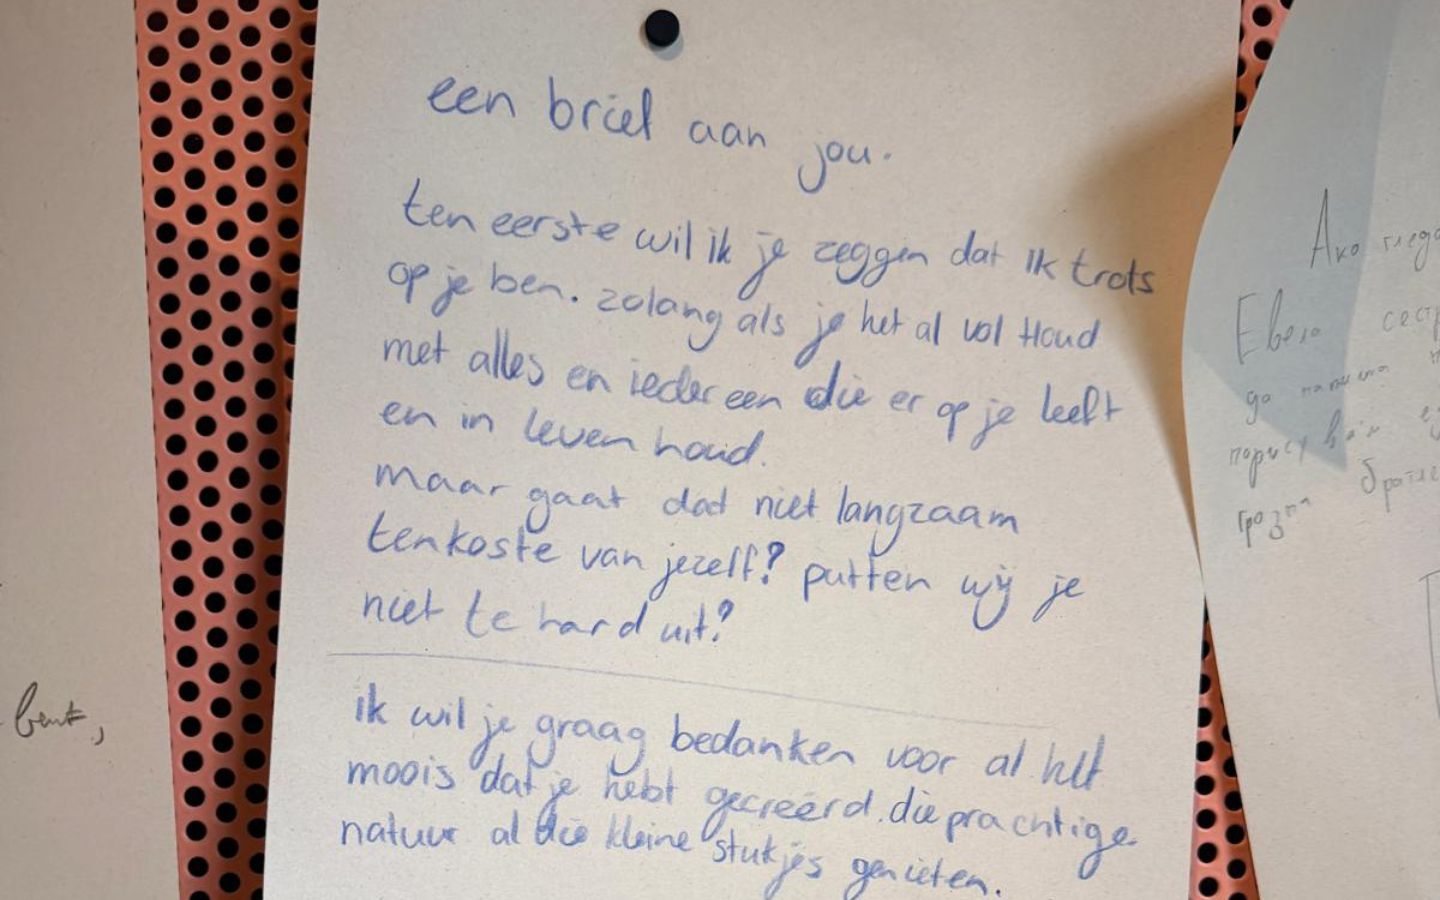 een brief aan jou.
ten eerste wil ik je zeggen dat ik trots
op je ben. zolang als je het al vol Houd
met alles en iedereen die er op je leeft
en in leven houd.
maar gaat dat niet langzaam
tenkoste van jezelf? putten wij je
niet te hard uit?
ik wil je graag bedanken voor al het
moois dat je hebt gecreërd. die prachtige
natuur al die kleine stukjes genieten.
bent,
Ако гледа
Евала сестр
да